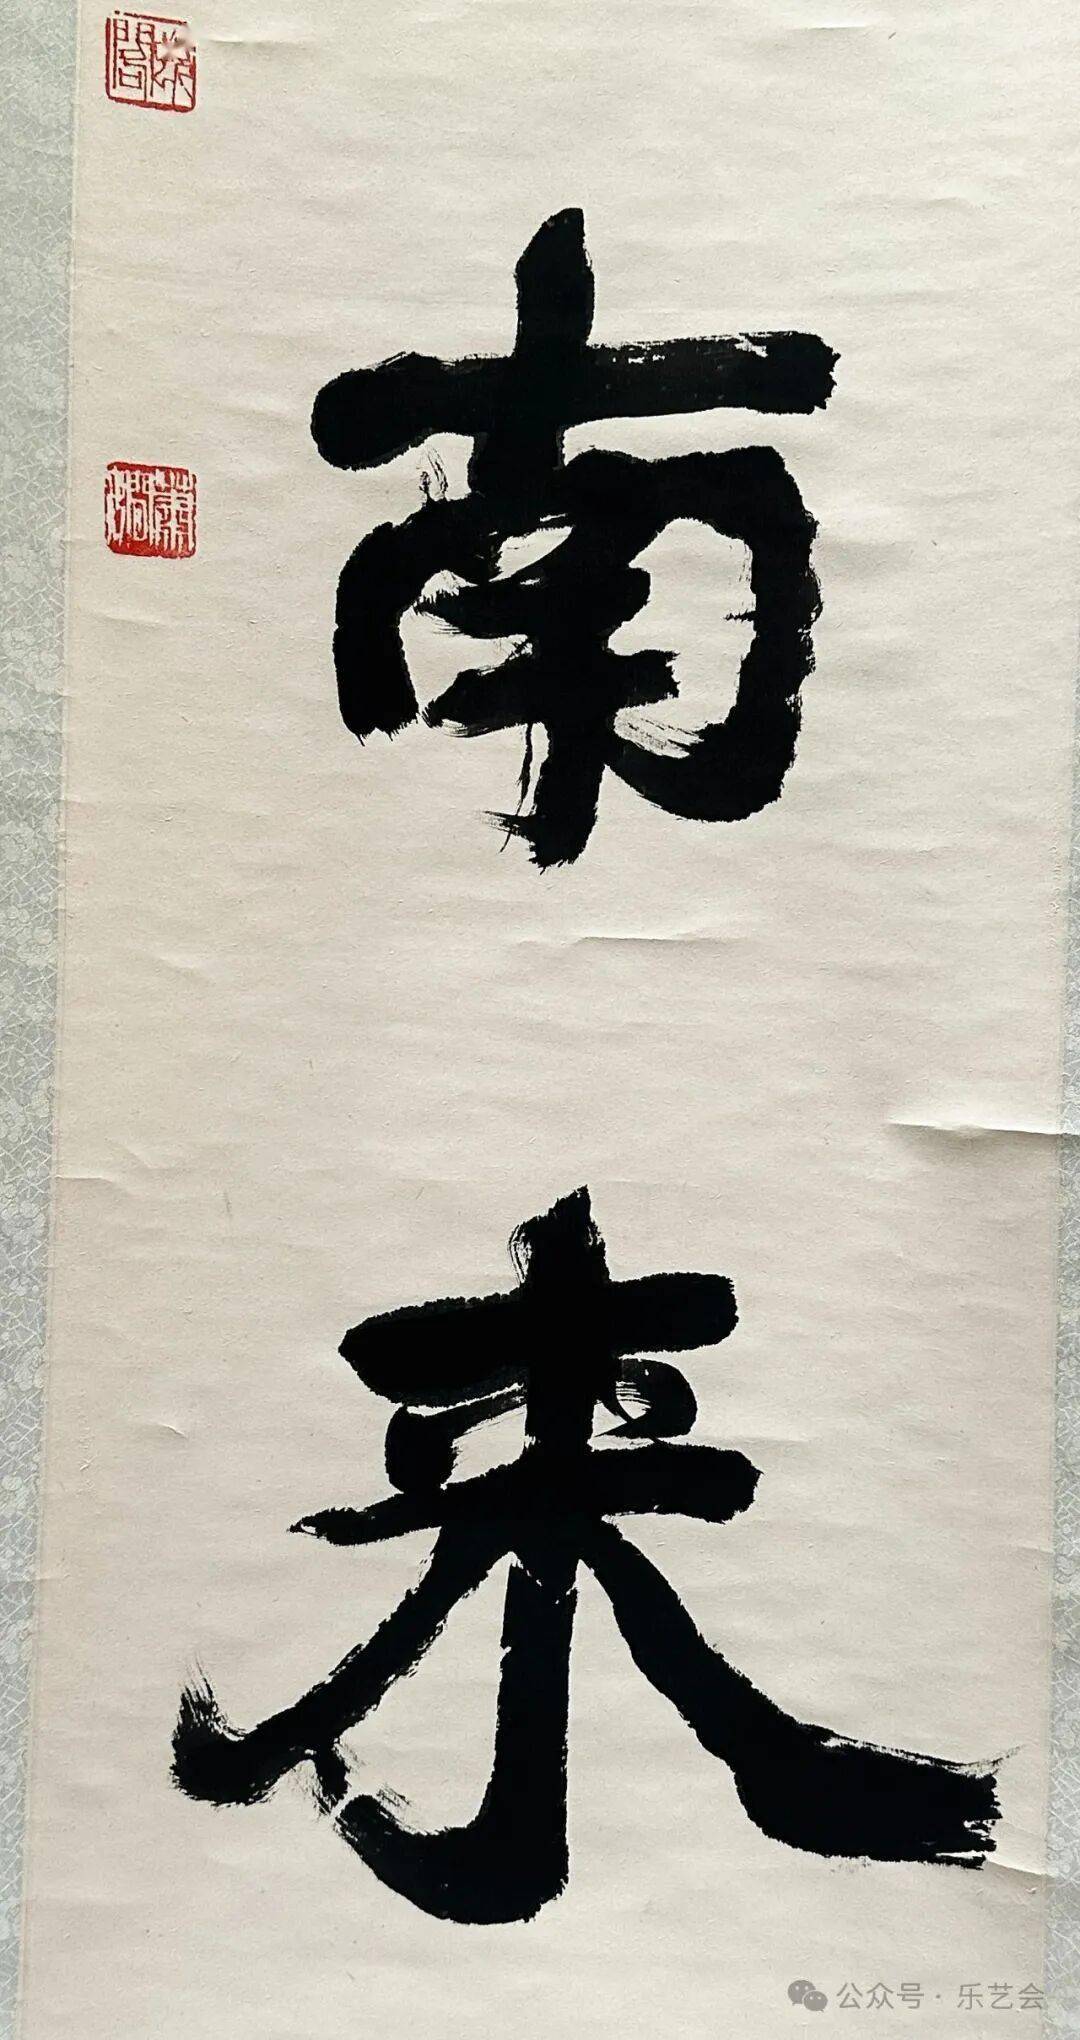 南
来
公众号·乐艺会